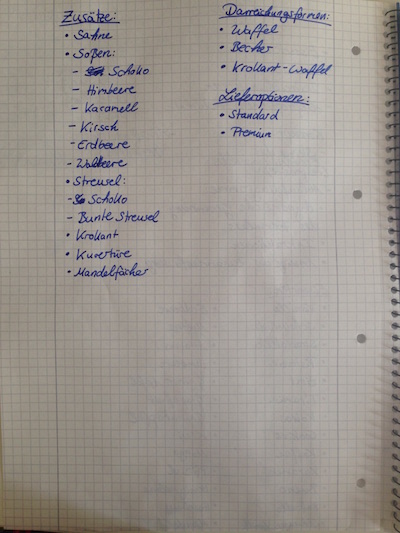 Zusätze:
• Sahne
• Soßen:
- Schoko
- Himbeere
- Karamell
- Kirsch
- Erdbeere
- Waldbeere
• Streusel:
- Schoko
- Bunte Streusel
• Krokant
• Kuvertüre
• Mandelfächer
Darreichungsformen:
• Waffel
• Becher
• Krokant-Waffel
Lieferoptionen:
• Standard
• Premium